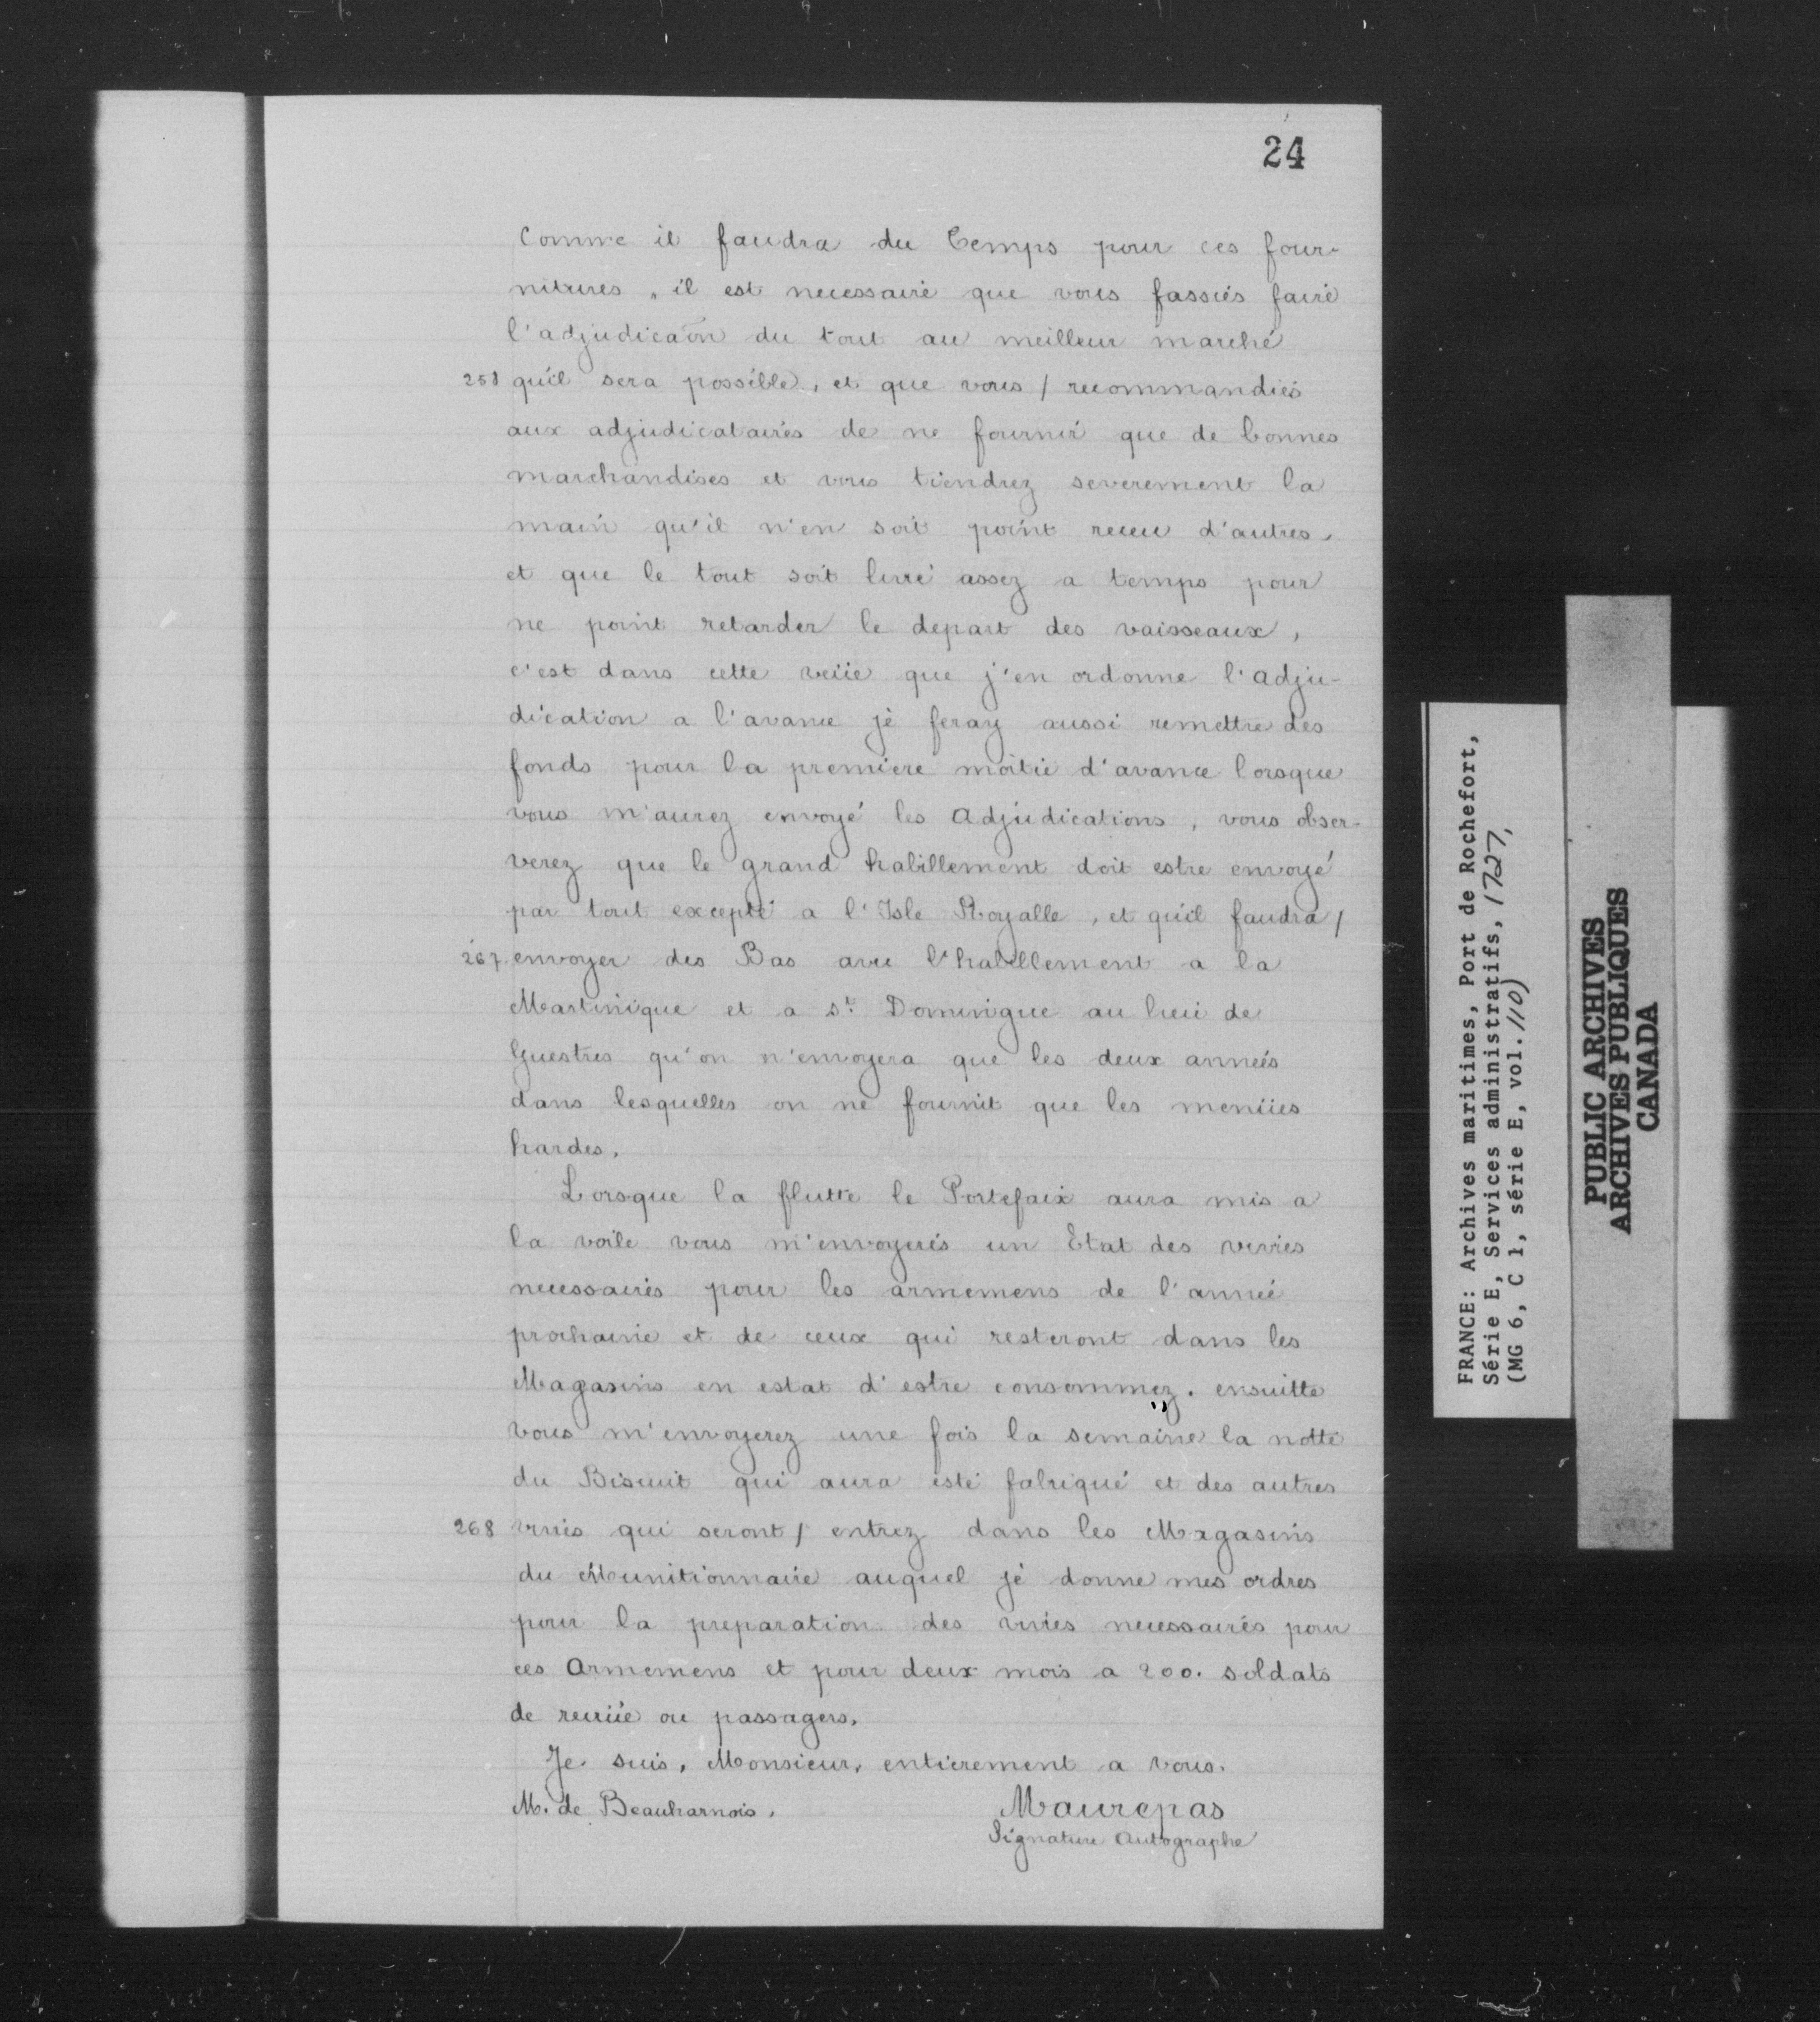 24
Comme il faudra du Temps pour ces four-
nitures, il est necessaire que vous fassiés faire
l'adjudicaõn du tout au meilleur marché
258 qu'il sera possible, et que vous / recommandiés
aux adjudicataires de ne fournir que de bonnes
marchandises et vous tiendrez severement la
main qu'il n'en soit point receu d'autres,
et que le tout soit livré assez a temps pour
ne point retarder le depart des vaisseaux,
c'est dans cette veüe que j'en ordonne l'adju-
dication a l'avance je feray aussi remettre des
fonds pour la premiere moitié d'avance lorsque
vous m'aurez envoyé les adjudications, vous obser-
verez que le grand habillement doit estre envoyé
par tout excepté a l'Isle Royalle, et qu'il faudra /
267. envoyer des Bas avec l'habillement a la
Martinique et a St. Domingue au lieu de
Guestres qu'on n'envoyera que les deux années
dans lesquelles on ne fournit que les menües
hardes.
Lorsque la flutte le Portefaix aura mis a
la voile vous m'envoyerés un Etat des vivres
necessaires pour les armemens de l'année
prochaine et de ceux qui resteront dans les
Magasins en estat d'estre consommez. ensuitte
vous m'envoyerez une fois la semaine la notte
du Biscuit qui aura esté fabriqué et des autres
268 vivres qui seront / entrez dans les Magasins
du Munitionnaire auquel je donne mes ordres
pour la preparation des vivres necessaires pour
ces Armemens et pour deux mois a 200. soldats
de recrüe ou passagers.
Je suis, Monsieur, entierement a vous.
M. de Beauharnois. Maurepas
Signature Autographe
FRANCE: Archives maritimes, Port de Rochefort,
Série E, Services administratifs, 1727,
(MG 6, C 1, série E, vol. 110)
PUBLIC ARCHIVES
ARCHIVES PUBLIQUES
CANADA